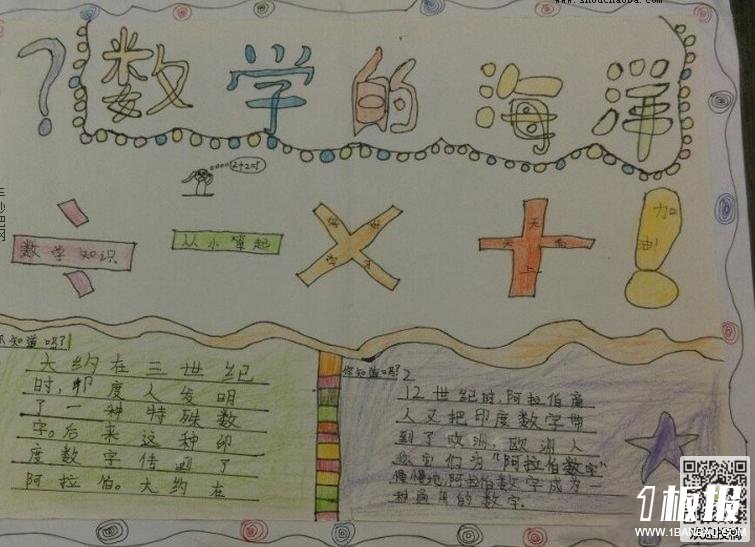 www.shouchaobao.com
?数学的海洋
2+2=?
数学知识
从小算起
天
天
向
上
加
油!
你知道吗?1
大约在三世纪
时,印度人发明
了一种特殊数
字。后来这种印
度数字传到了
阿拉伯。大约在
你知道吗?2
12世纪时,阿拉伯商
人又把印度数字带
到了欧洲。欧洲人
称它们为"阿拉伯数字"
慢慢地,阿拉伯数字成为
种商用的数字.
1板报
WWW.1BANBAO.COM